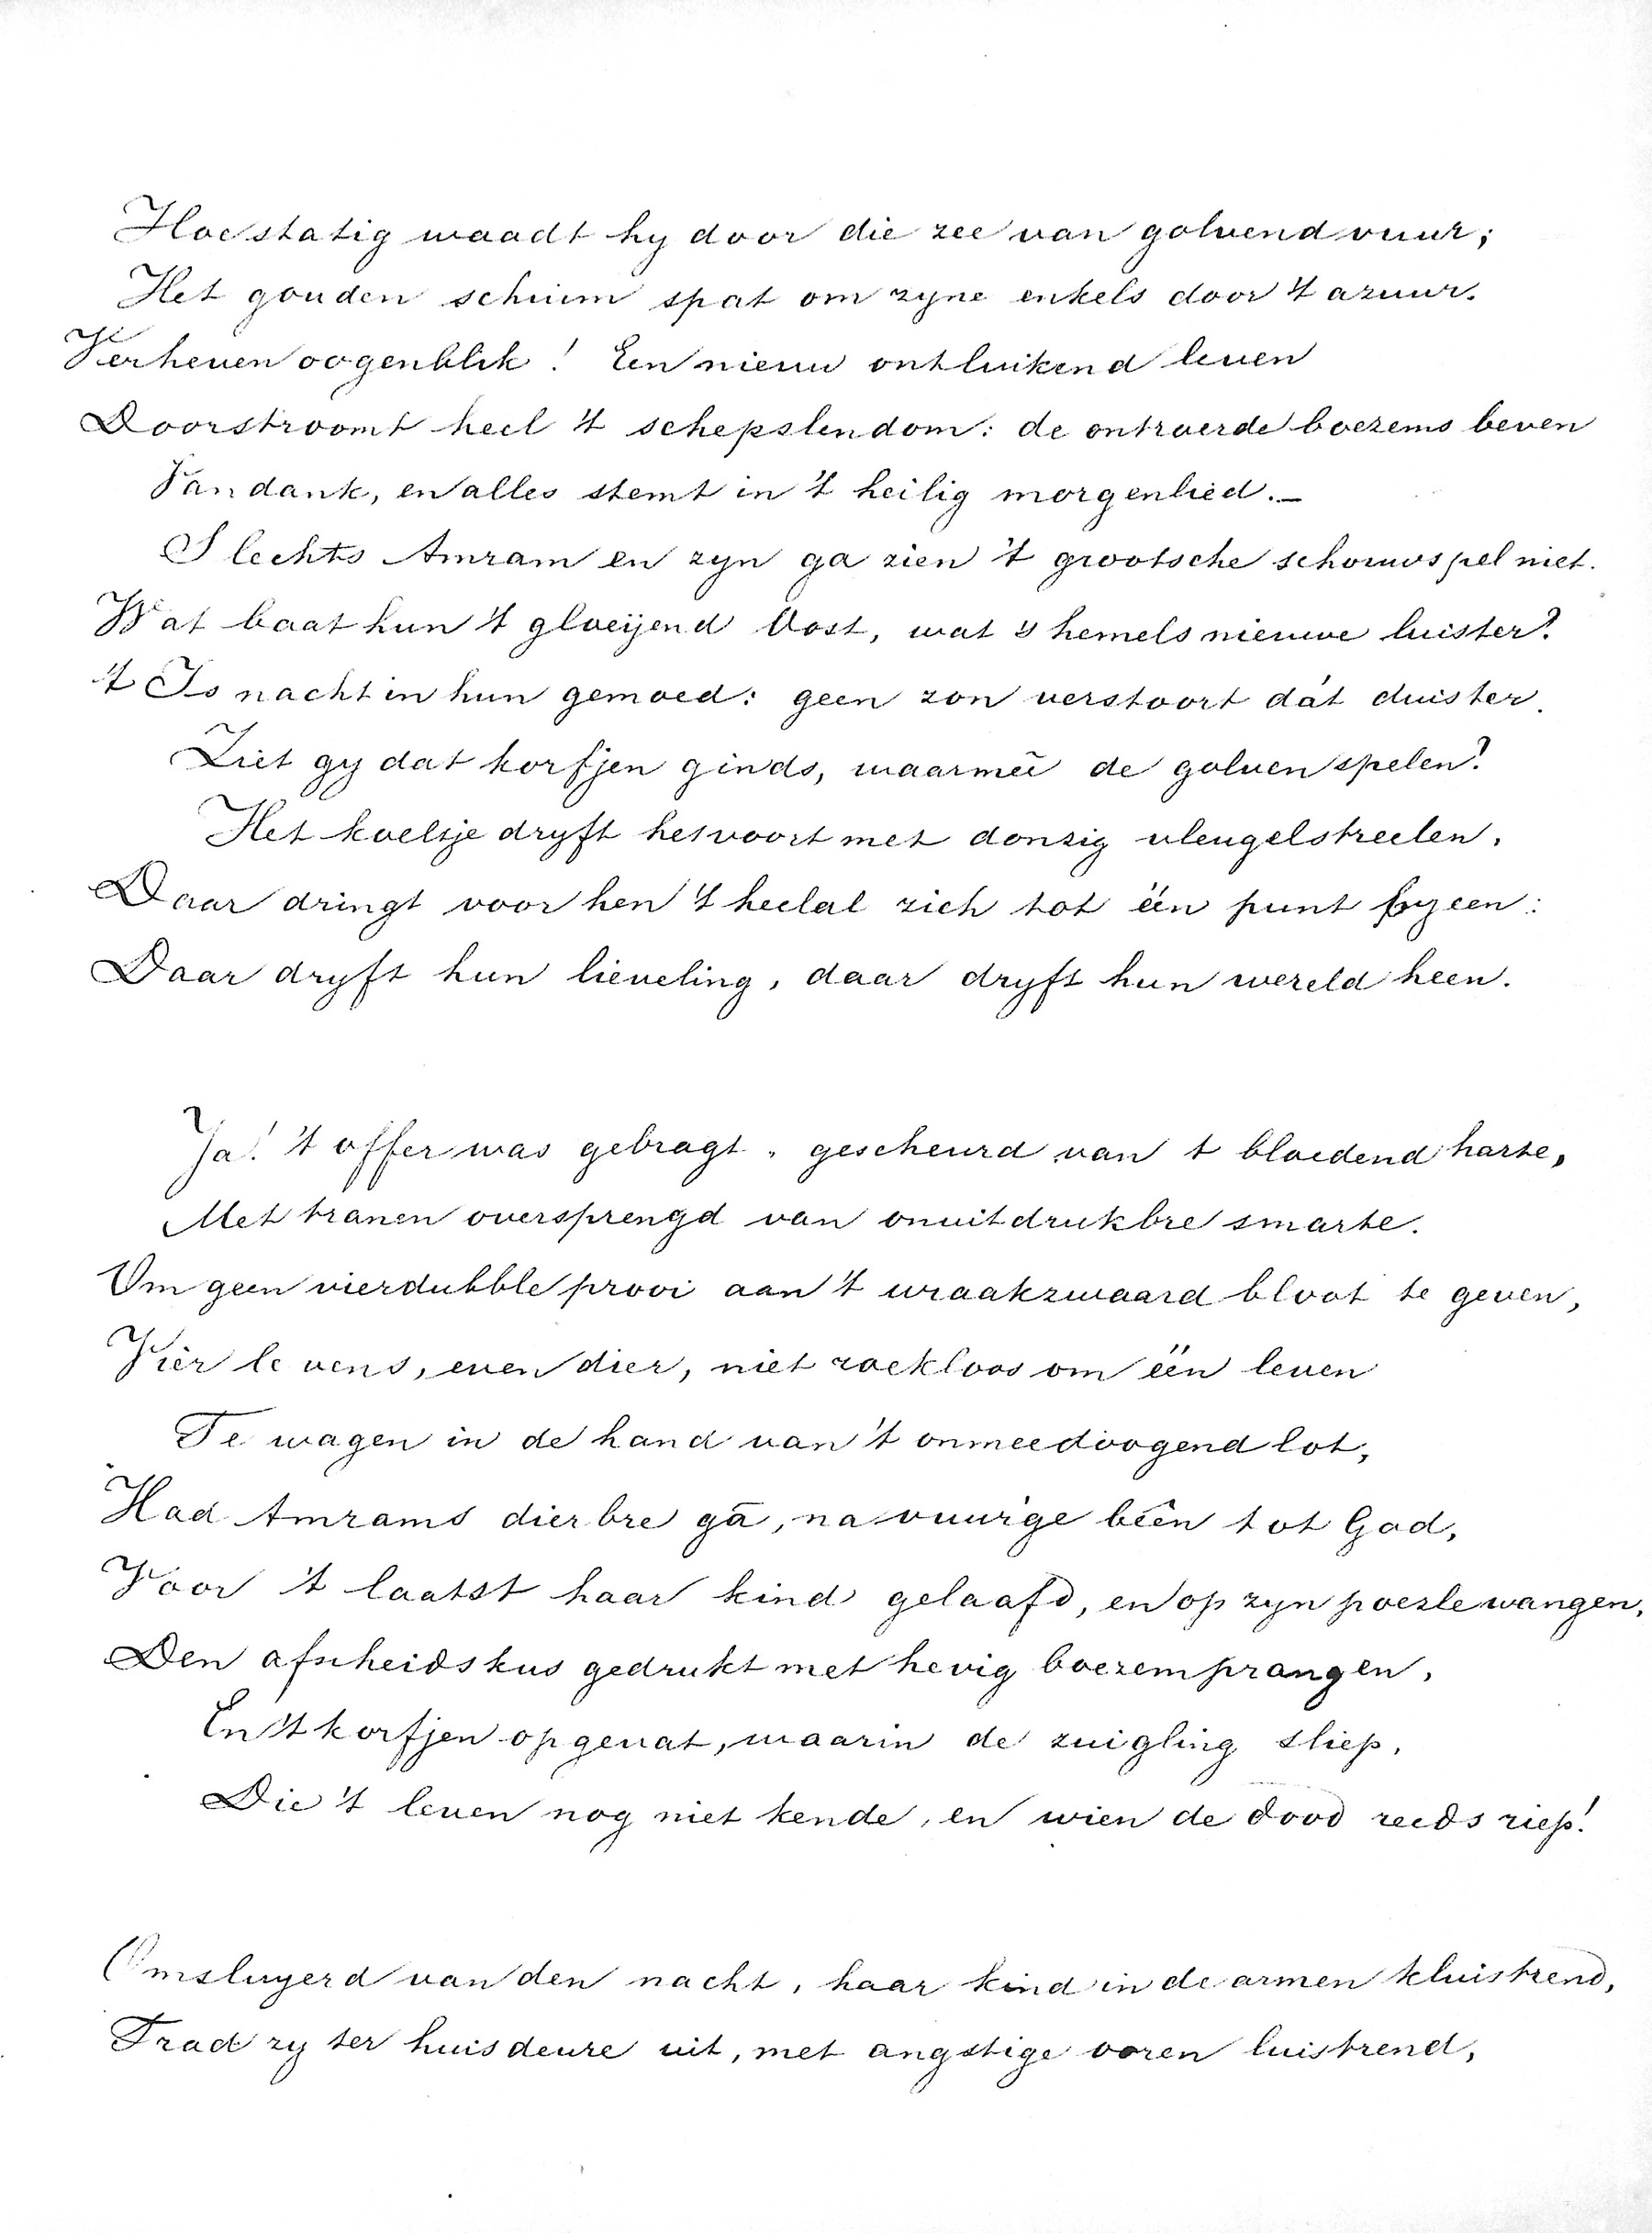 Hoe statig waadt hy door die zee van golvend vuur;
Het gouden schuim spat om zyne enkels door 't azuur.
Verheven oogenblik! Een nieuw ontluikend leven
Doorstroomt heel 't schepslendom: de ontroerde boezems beven
Van dank, en alles stemt in 't heilig morgenlied._
Slechts Amram en zyn ga zien 't grootsche schouwspel niet.
Wat baat hun 't gloeijend Oost, wat 's hemels nieuwe luister?
't Is nacht in hun gemoed: geen zon verstoort dát duister.
Ziet gy dat korfjen ginds, waarmeê de golven spelen?
Het koeltje dryft het voort met donzig vleugelstreelen.
Daar dringt voor hen 't heelal zich tot één punt byeen:
Daar dryft hun lieveling, daar dryft hun wereld heen.
Ja! 't offer was gebragt, gescheurd van 't bloedend harte,
Met tranen oversprengd van onuitdrukbre smarte.
Om geen vierdubble prooi aan 't wraakzwaard bloot te geven,
Vier levens, even dier, niet roekloos om één leven
Te wagen in de hand van 't onmeedoogend lot,
Had Amrams dierbre gâ, na vuur'ge beên tot God,
Voor 't laatst haar kind gelaafd, en op zyn poezle wangen,
Den afscheidskus gedrukt met hevig boezemprangen,
En 't korfjen opgevat, waarin de zuigling sliep,
Die 't leven nog niet kende, en wien de dood reeds riep!
Omsluyerd van den nacht, haar kind in de armen kluistrend,
Trad zy ter huisdeure uit, met angstige ooren luistrend,